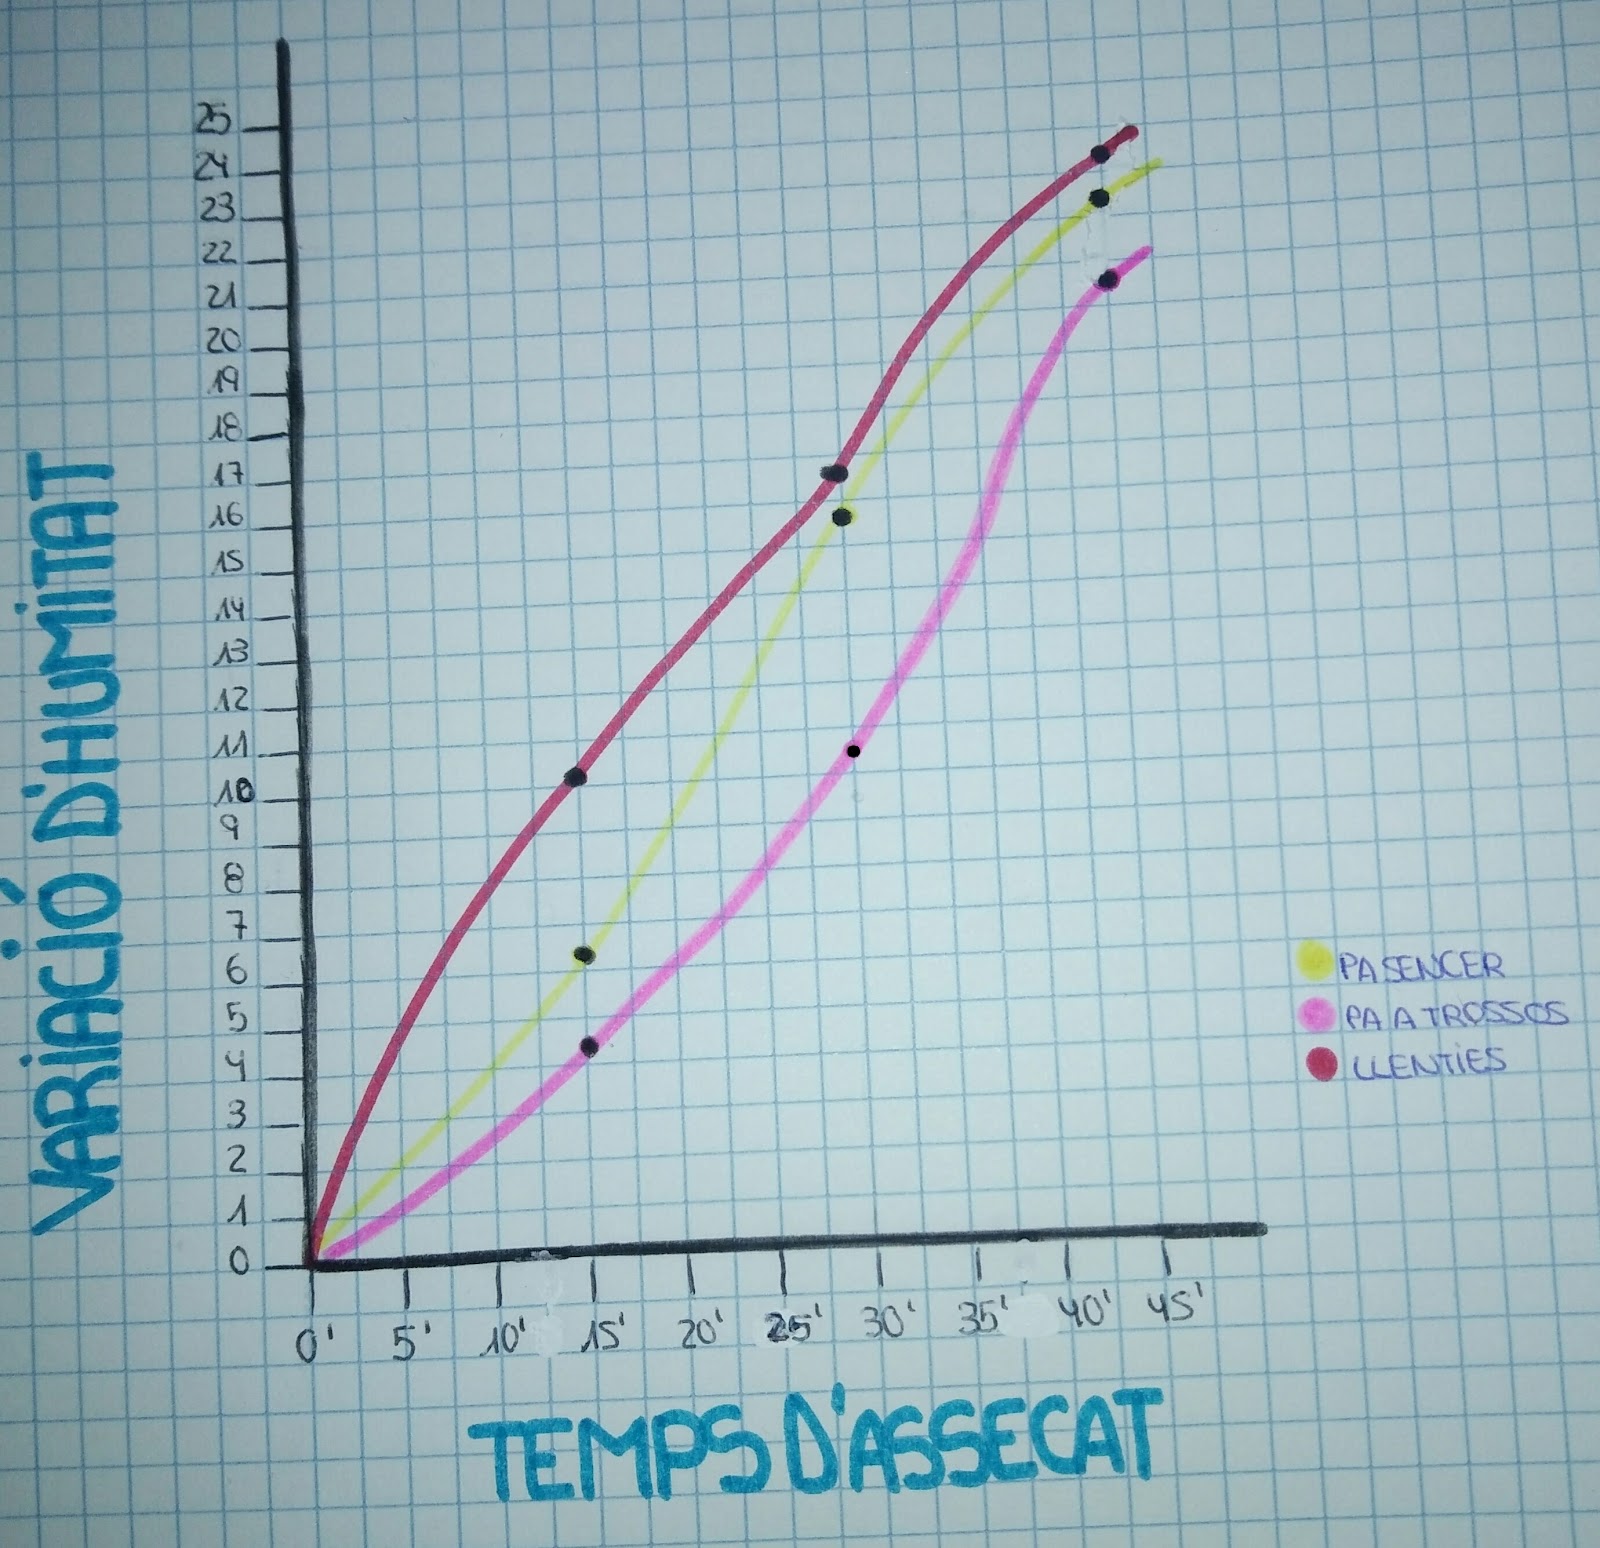 VARIACIÓ D'HUMITAT
25
24
23
22
21
20
19
18
17
16
15
14
13
12
11
10
9
8
7
6
5
4
3
2
1
0
0' 5' 10' 15' 20' 25' 30' 35' 40' 45'
TEMPS D'ASSECAT
PA SENCER
PA A TROSSOS
LLENTIES